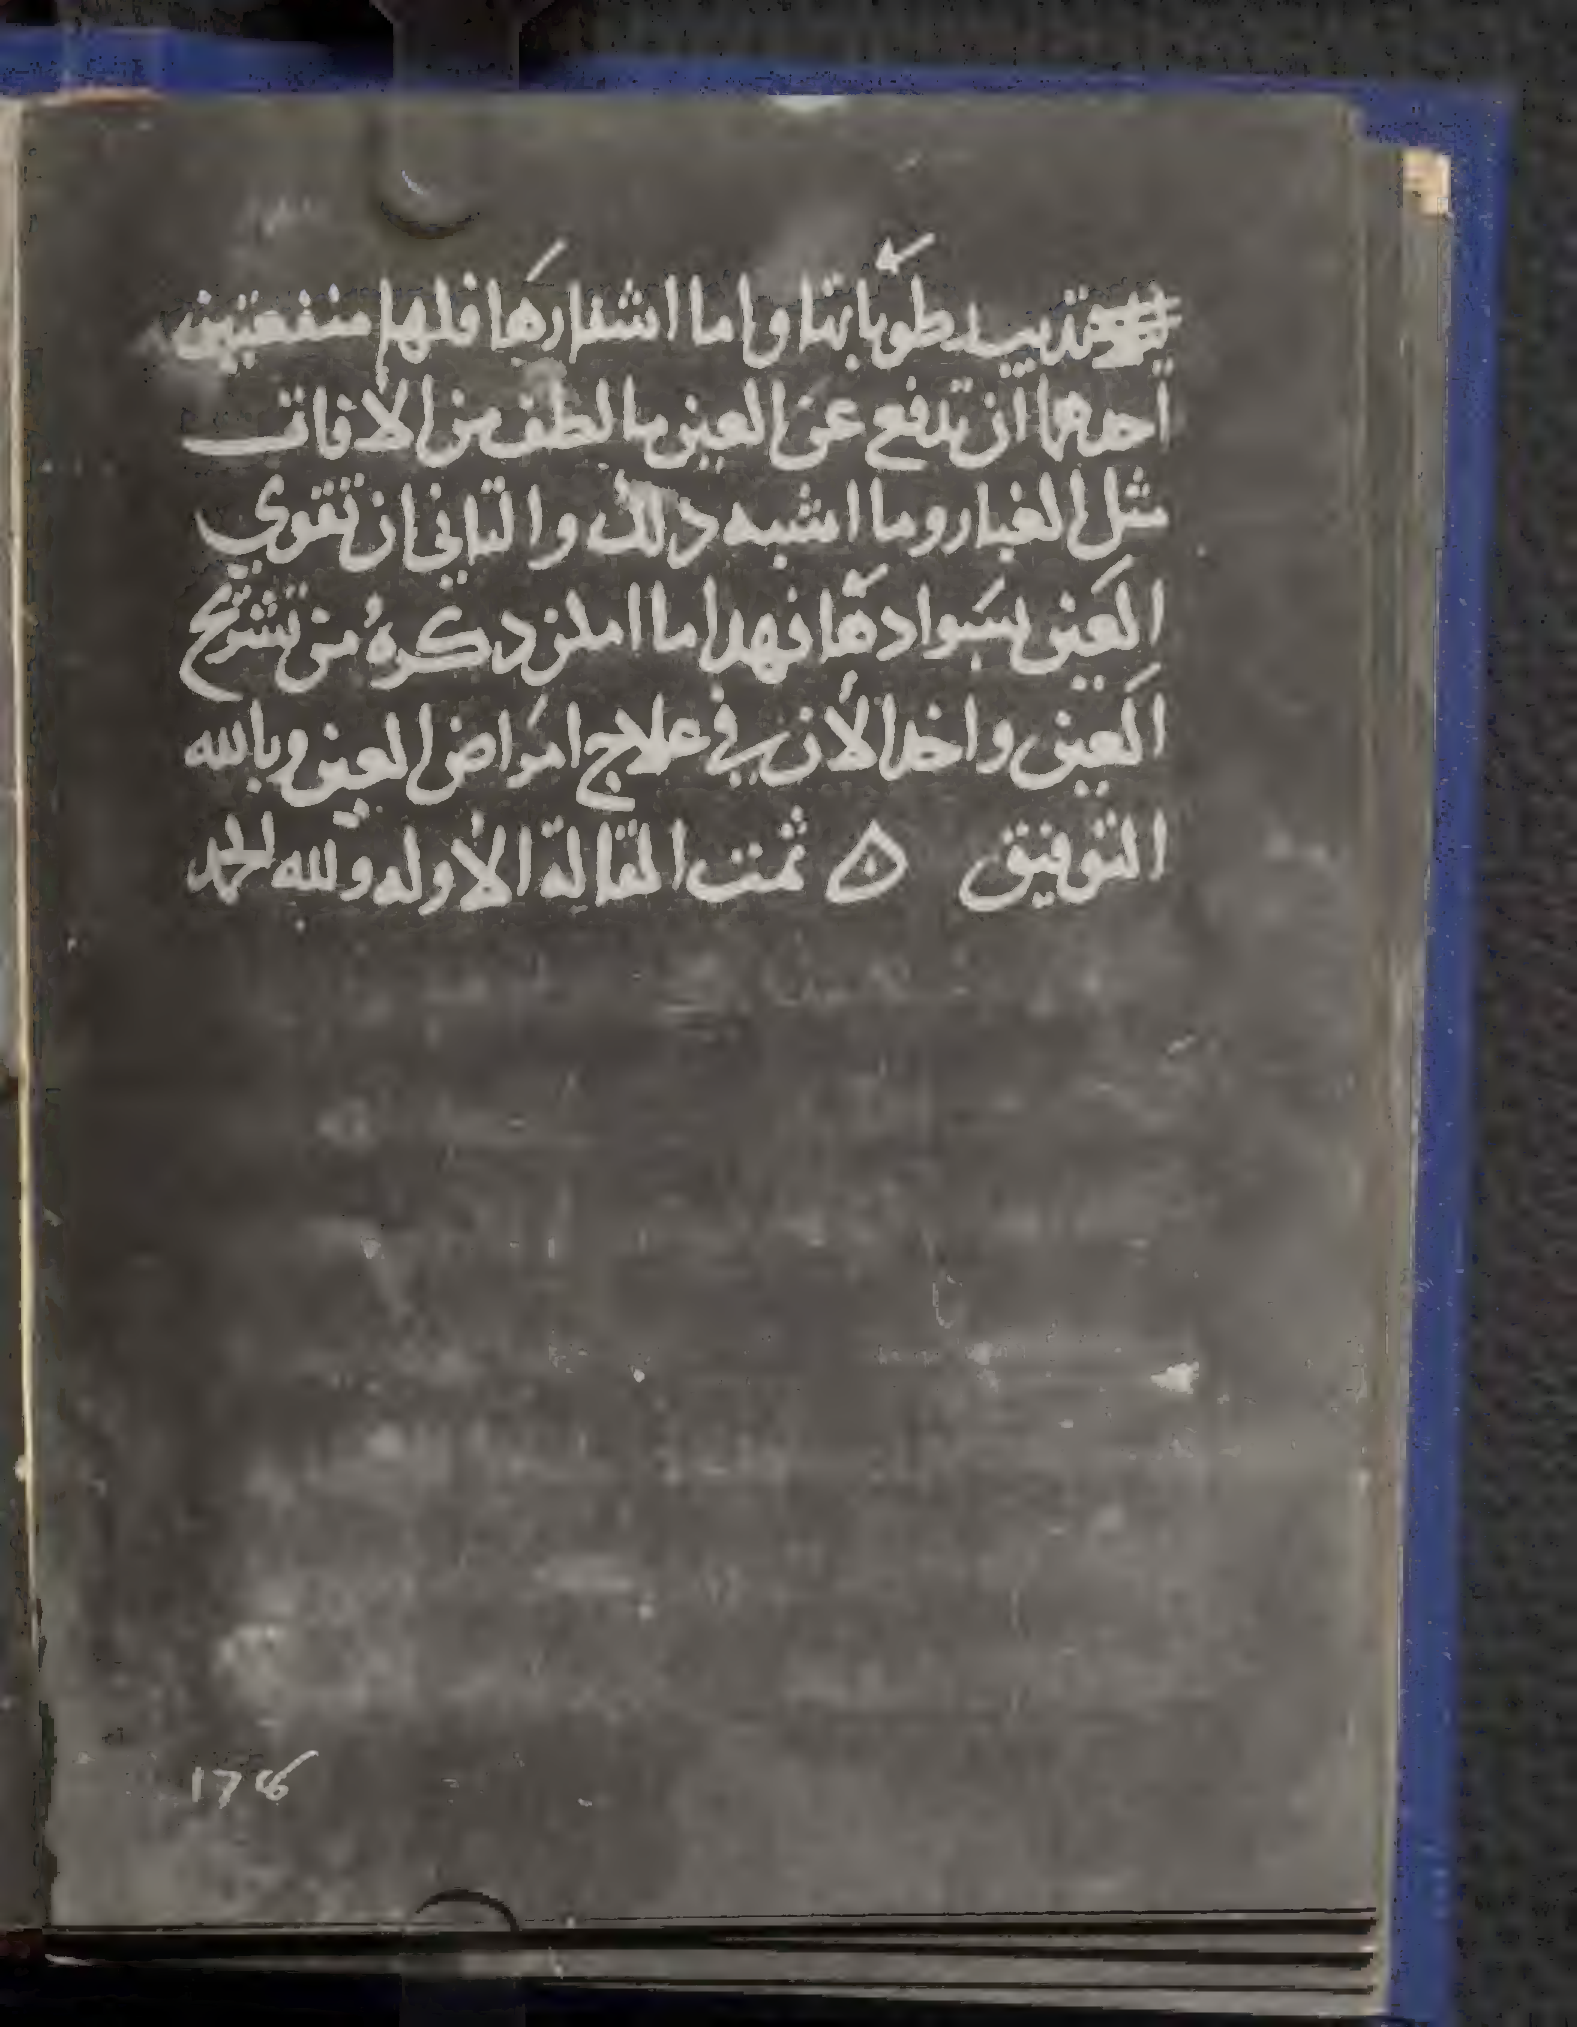 تديب رطوباتنا واما اشفارها فلها منفعتين
احدهما ان تدفع عن العين ما لطف من الافات
مثل الغبار وما اشبه دلك والتاني ان تقوي
العين بسوادها فهدا ما امكن دكره من تشريح
العين واخد الان في علاج امراض العين وبالله
التوفيق ۞ تمت المقالة الاوله ولله الحمد